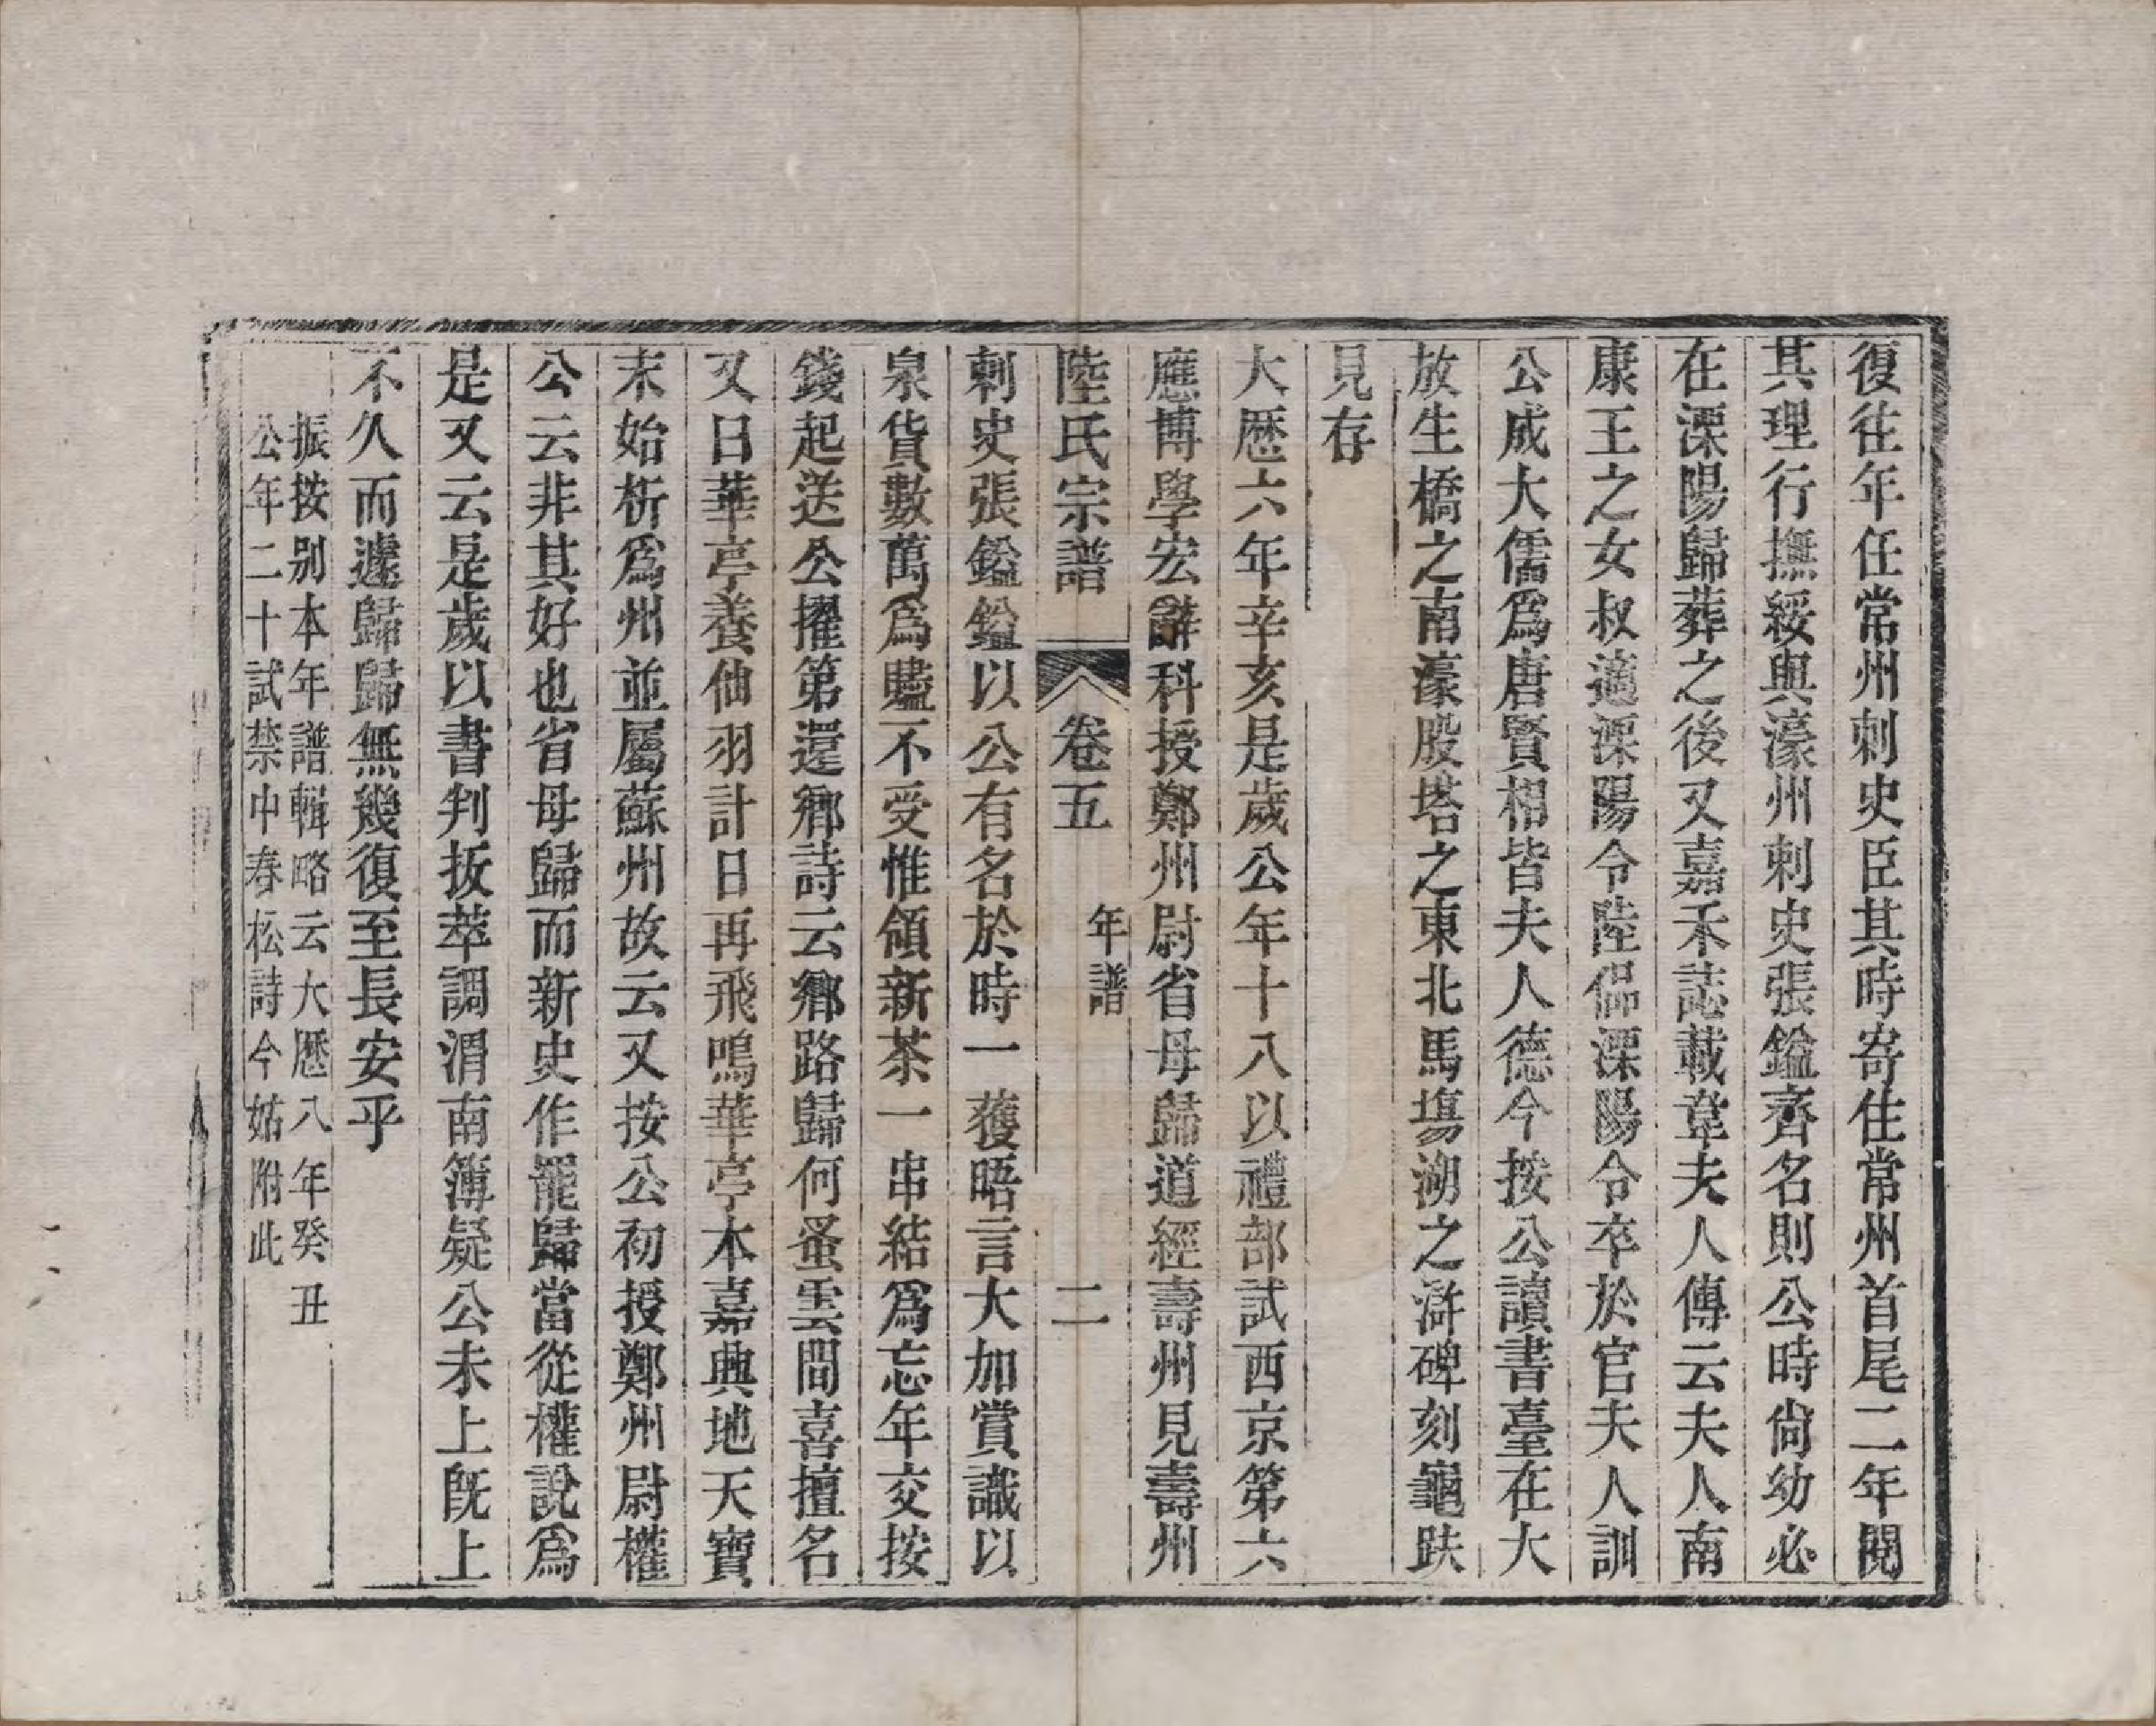 復往年任常州刺史臣其時寄住常州首尾二年閱
其理行撫綏與濠州刺史張鎰齊名則公時尙幼必
在溧陽歸葬之後又嘉禾誌載韋夫人傳云夫人南
康王之女叔適溧陽令陸侃溧陽令卒於官夫人訓
公成大儒爲唐賢相皆夫人德今按公讀書臺在大
放生橋之南濠股塔之東北馬塲湖之滸碑刻龜趺
見存
大歷六年辛亥是歲公年十八以禮部試西京第六
應博學宏辭科授鄭州尉省母歸道經壽州見壽州
陸氏宗譜　卷五　年譜　二
刺史張鎰鎰以公有名於時一獲晤言大加賞識以
泉貨數萬爲贐不受惟領新茶一串結爲忘年交按
錢起送公擢第還鄉詩云鄉路歸何蚤雲間喜擅名
又曰華亭養仙羽計日再飛鳴華亭本嘉興地天寶
末始析爲州並屬蘇州故云又按公初授鄭州尉權
公云非其好也省母歸而新史作罷歸當從權說爲
是又云是歲以書判拔萃調渭南簿疑公未上旣上
不久而遽歸歸無幾復至長安乎
振按别本年譜輯略云大歷八年癸丑
公年二十試禁中春松詩今姑附此